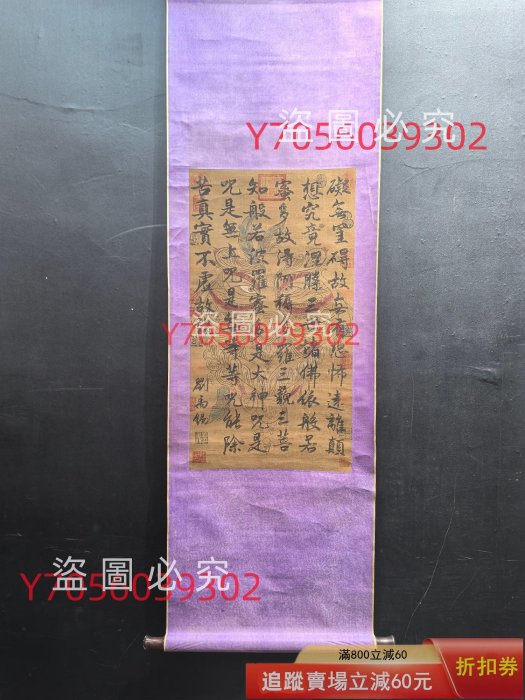 盜圖必究
Y7050039302
礙無罣碍故無有恐怖遠離顛
想究竟涅槃三世諸佛依般若
蜜多故得阿耨多羅三藐三菩
知般若波羅蜜多是大神咒是
咒是無上咒是無等等咒能除
苦真實不虛故
劉禹錫
盜圖必究
Y7050039302
盜圖必究
Y7050039302
滿800立減60
追蹤賣場立減60元
折扣券